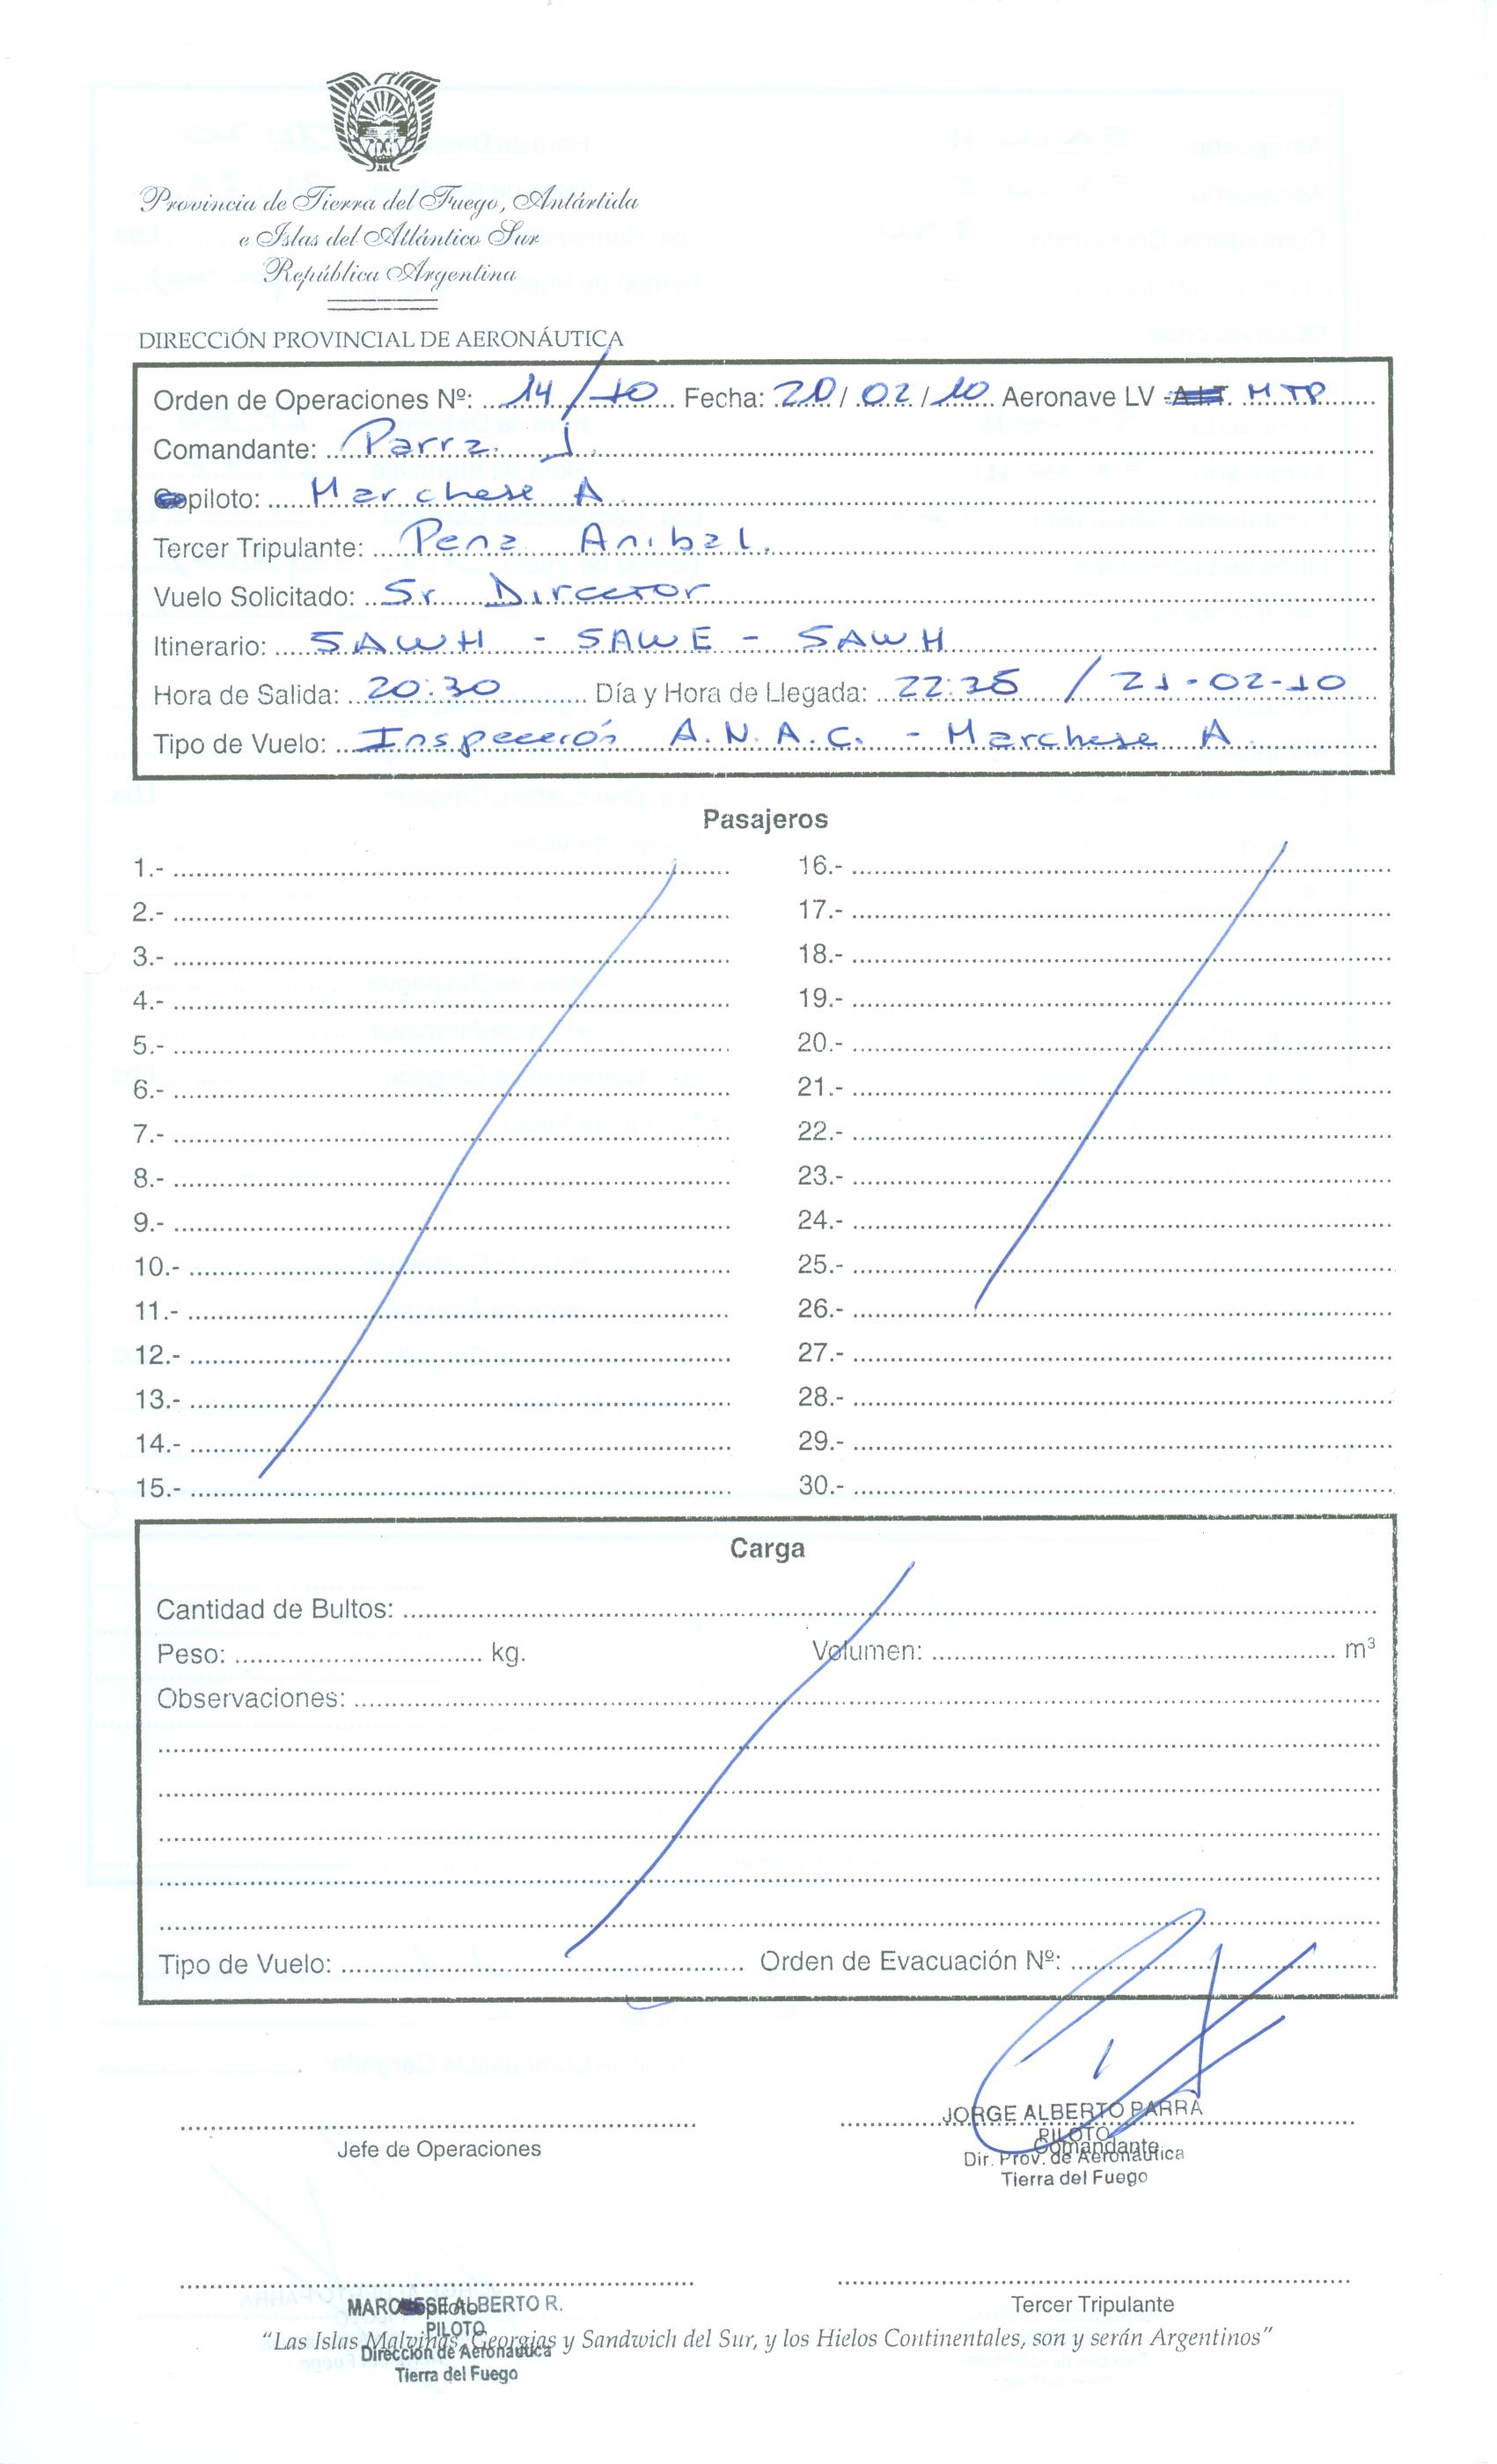 Provincia de Tierra del Fuego, Antártida
e Islas del Atlántico Sur
República Argentina
DIRECCIÓN PROVINCIAL DE AERONÁUTICA
Orden de Operaciones Nº: 14/10 Fecha: 20/02/10 Aeronave LV - A.I.T. MTP
Comandante: Parra J.
Copiloto: Marchese A
Tercer Tripulante: Pena Anibal.
Vuelo Solicitado: Sr Director
Itinerario: SAWH - SAWE - SAWH
Hora de Salida: 20:30 Día y Hora de Llegada: / 21-02-10
Tipo de Vuelo: Inspección A.N.A.C. - Marchese A
Pasajeros
1.- 16.-
2.- 17.-
3.- 18.-
4.- 19.-
5.- 20.-
6.- 21.-
7.- 22.-
8.- 23.-
9.- 24.-
10.- 25.-
11.- 26.-
12.- 27.-
13.- 28.-
14.- 29.-
15.- 30.-
Carga
Cantidad de Bultos:
Peso: kg. Volumen: m³
Observaciones:
Tipo de Vuelo: Orden de Evacuación Nº:
JORGE ALBERTO PARRA
PILOTO
Jefe de Operaciones Comandante
Dir. Prov. de Aeronáutica
Tierra del Fuego
MARCHESE ALBERTO R. Tercer Tripulante
PILOTO
"Las Islas Malvinas, Georgias y Sandwich del Sur, y los Hielos Continentales, son y serán Argentinos"
Dirección de Aeronautica
Tierra del Fuego